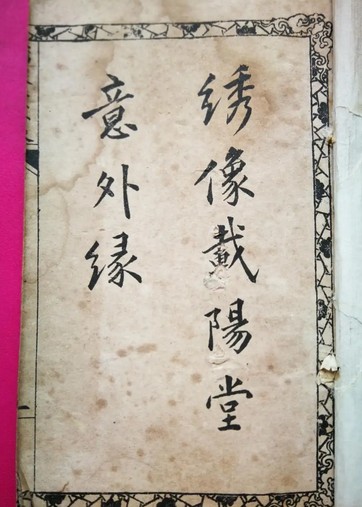 绣像載陽堂
意外缘